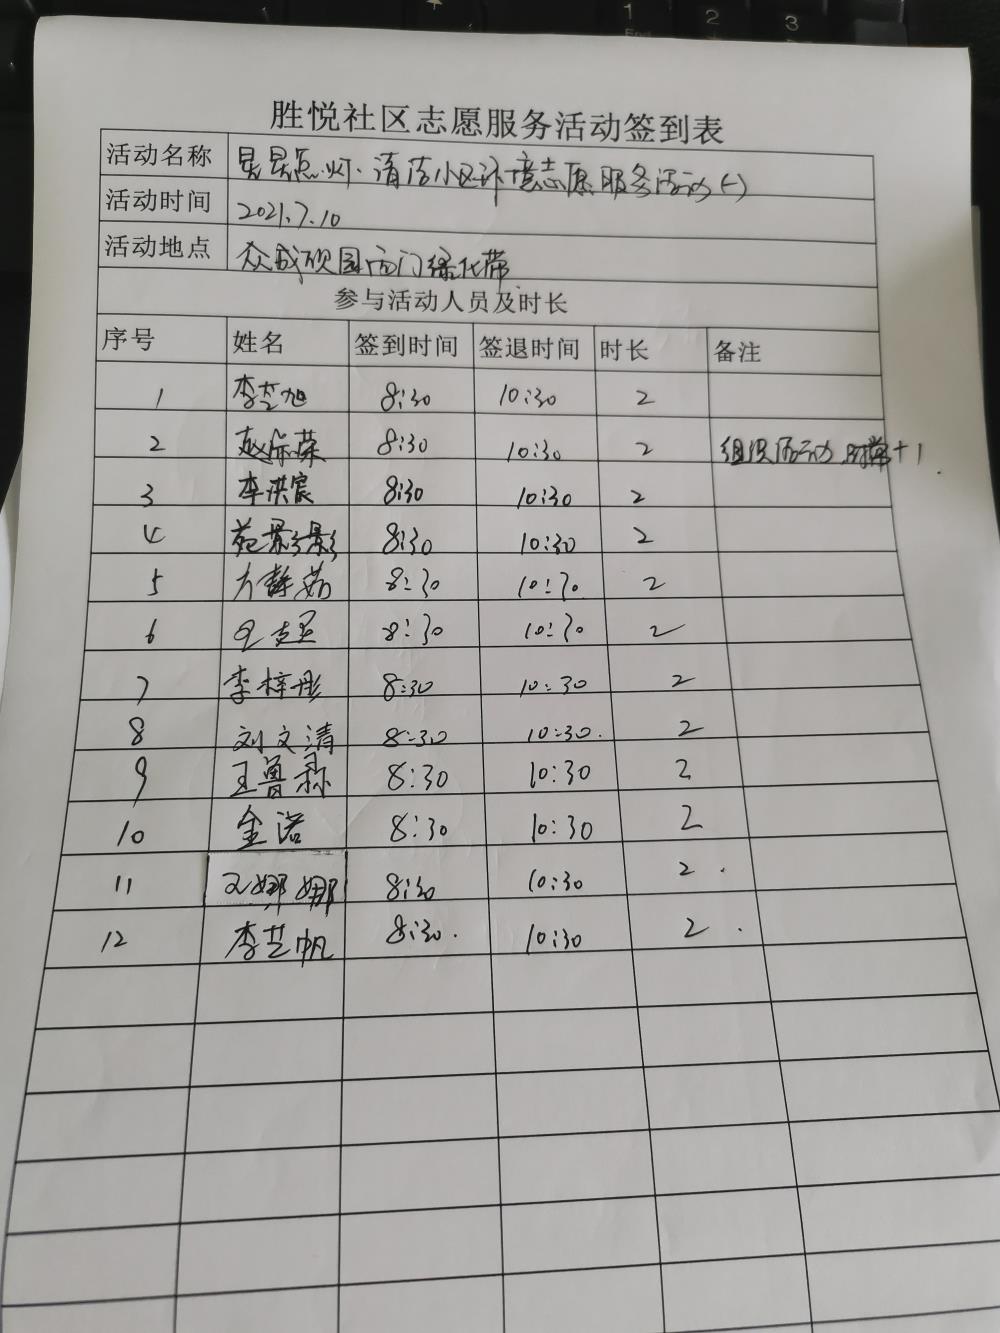 胜悦社区志愿服务活动签到表
活动名称 星星点灯·清洁小区环境志愿服务活动(一)
活动时间 2021.7.10
活动地点 众成硕园西门绿化带
参与活动人员及时长
序号 姓名 签到时间 签退时间 时长 备注
1 李芝旭 8:30 10:30 2
2 赵 荣 8:30 10:30 2 组织活动 时常+1
3 李洪宸 8:30 10:30 2
4 苑影影 8:30 10:30 2
5 方静茹 8:30 10:30 2
6 8:30 10:30 2
7 李梓彤 8:30 10:30 2
8 刘文清 8:30 10:30. 2
9 王鲁 8:30 10:30 2
10 金诺 8:30 10:30 2
11 王娜娜 8:30 10:30 2.
12 李芝帆 8:30. 10:30 2.
1 2 3
End